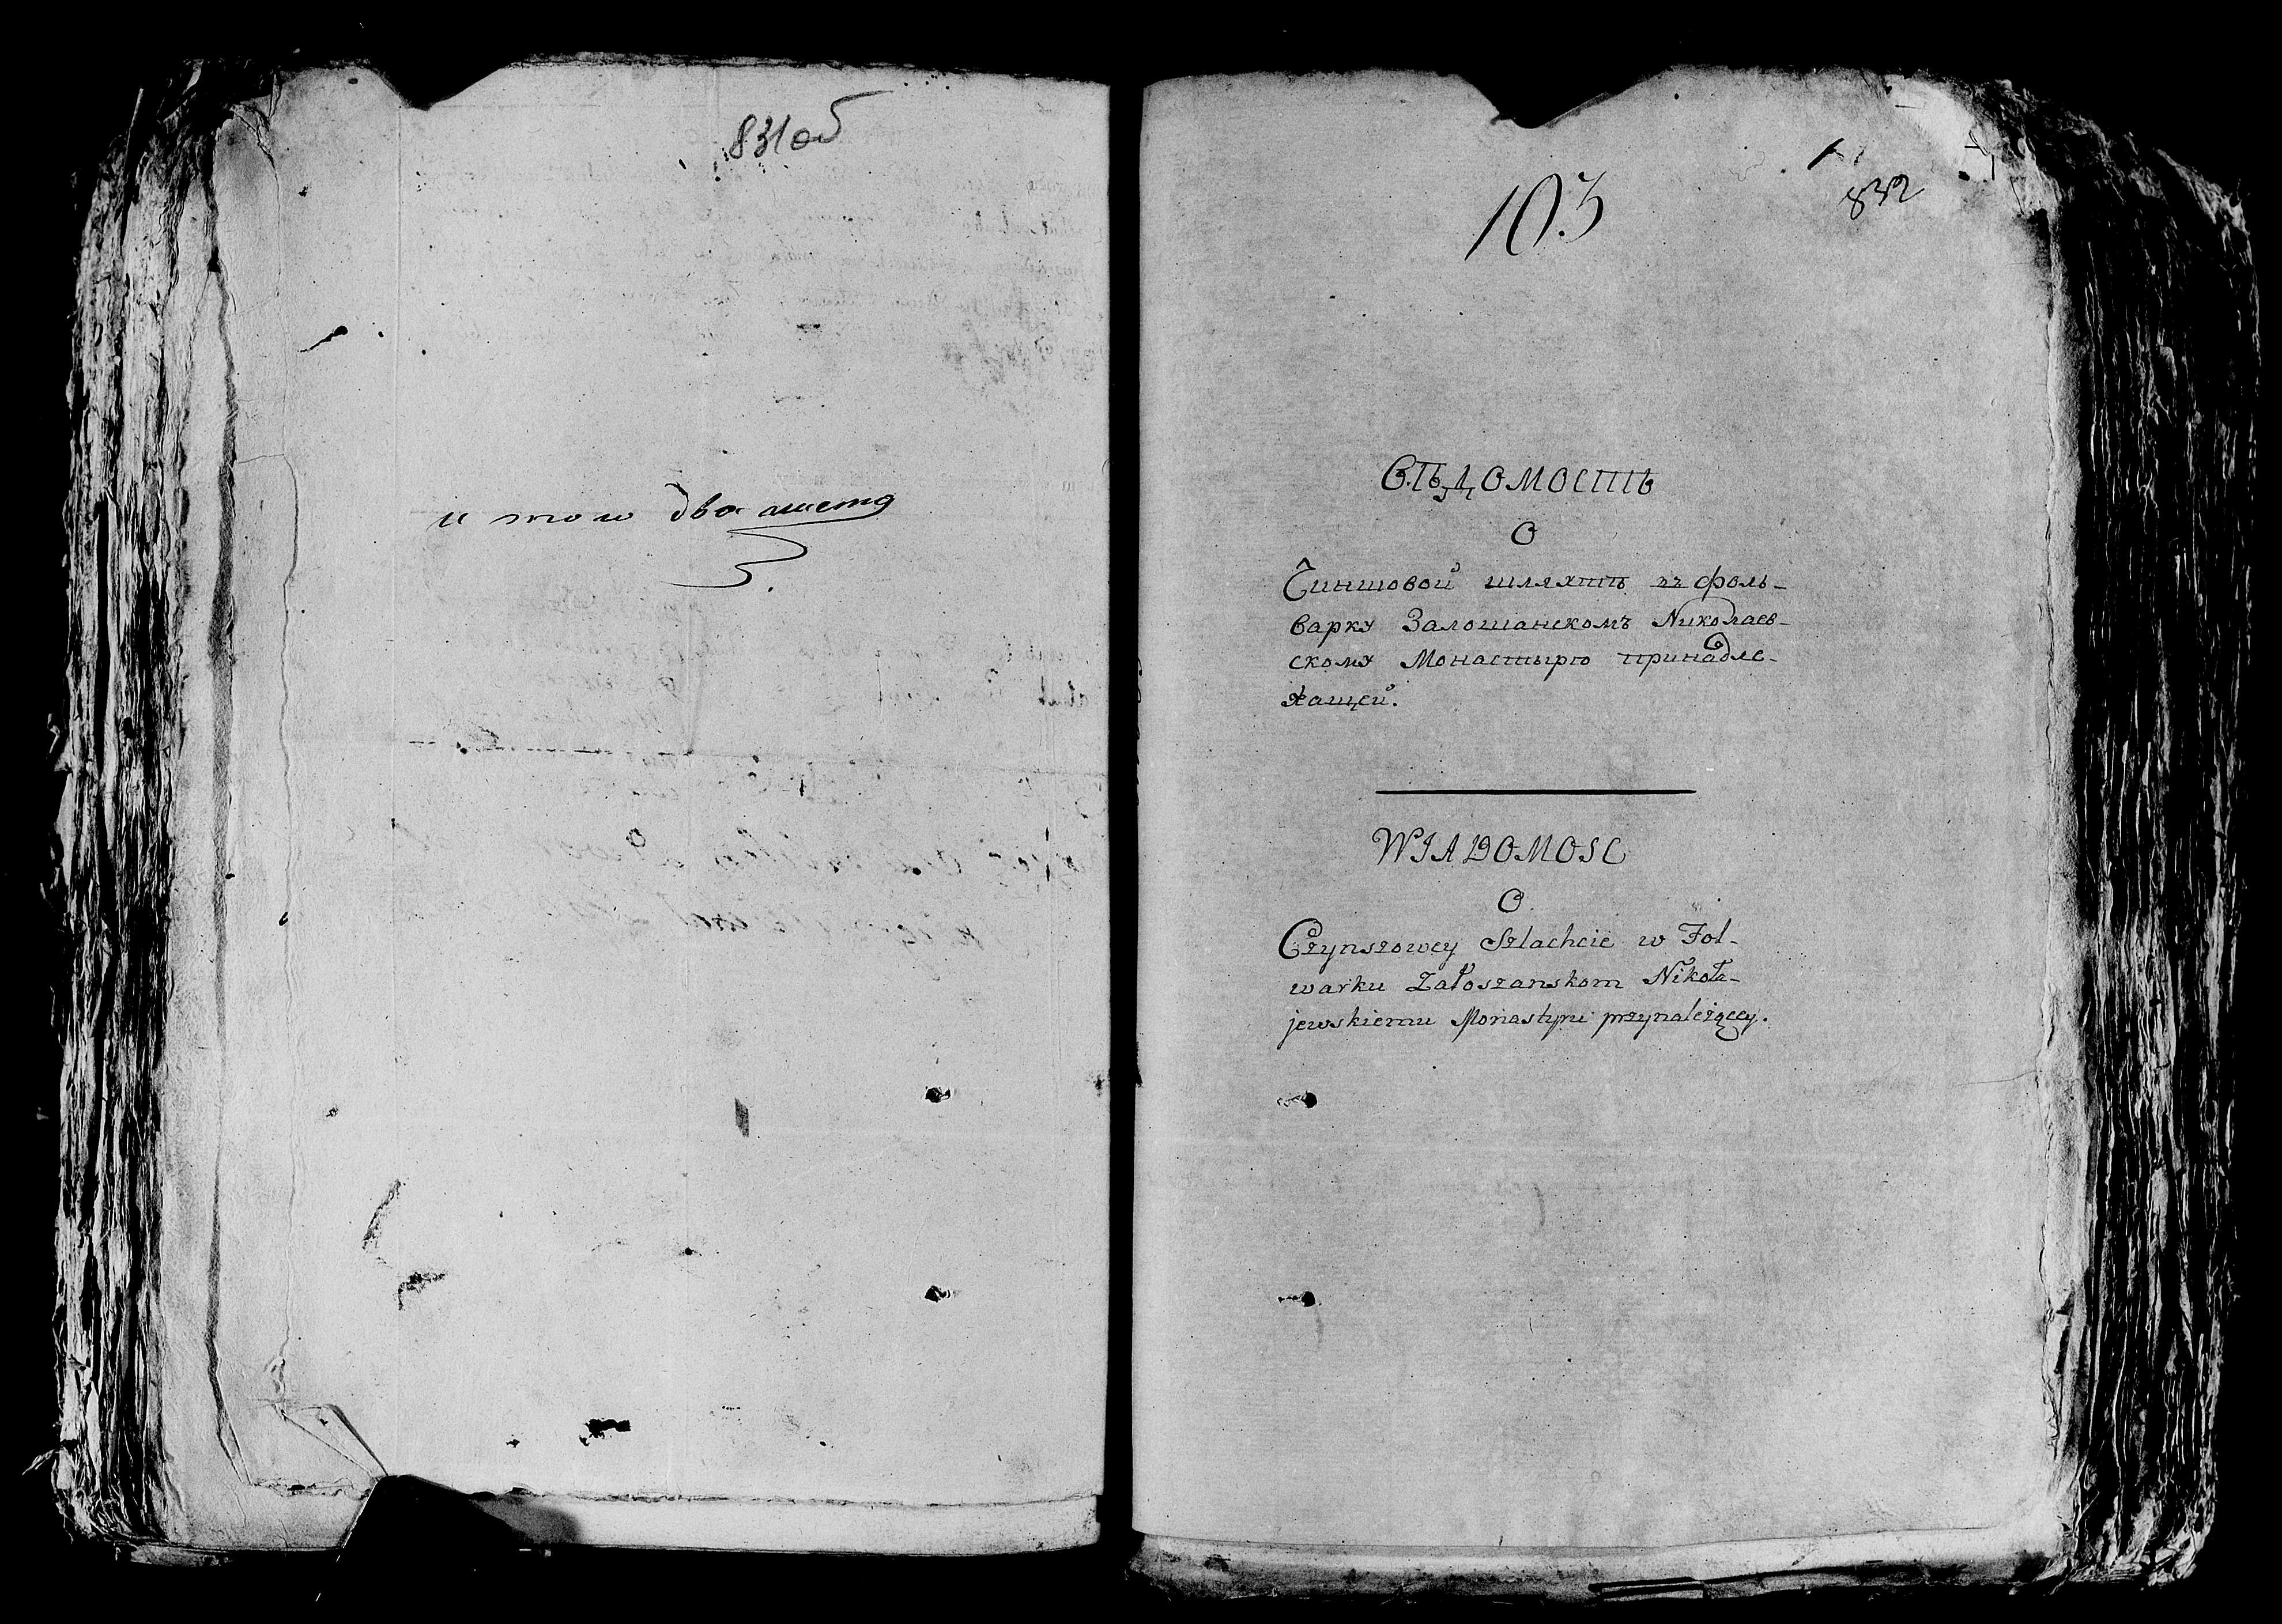 831 об
итого два листа
103
832
Вѣдомость
О
Чиншовой шляхтѣ въ фоль-
варку Залошанскомъ Николаев-
скому Монастырю принадле-
жащей.
WIADOMOSC
O
Czynszowey Szlachcie w Fol-
warku Załoszanskom Nikoła-
jewskiemu Monastyru przynależącey.